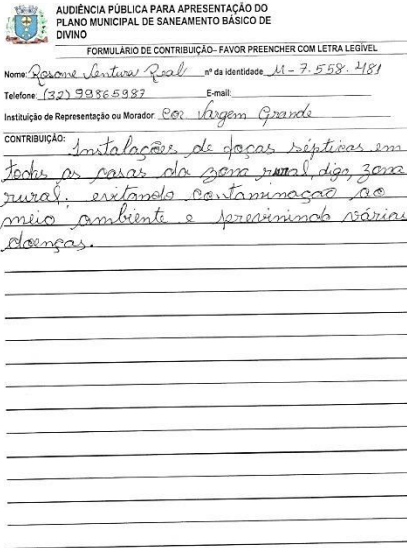 AUDIÊNCIA PÚBLICA PARA APRESENTAÇÃO DO
PLANO MUNICIPAL DE SANEAMENTO BÁSICO DE
DIVINO
FORMULÁRIO DE CONTRIBUIÇÃO– FAVOR PREENCHER COM LETRA LEGÍVEL
Nome: Rosane Ventura Real nº da identidade M-7.558.481
Telefone: (32) 99865987 E-mail:
Instituição de Representação ou Morador Cor Vargem Grande
CONTRIBUIÇÃO: Instalações de foças sépticas em
todas as casas da zona rural, digo, zona
rural; evitando contaminação ao
meio ambiente e prevenindo várias
doenças.